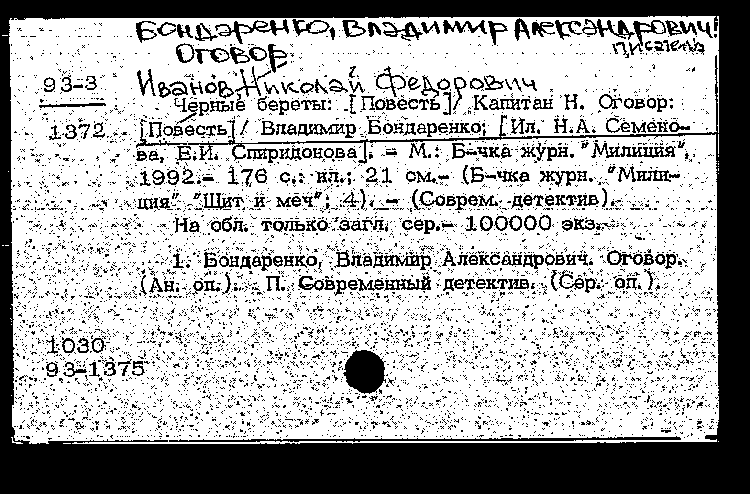 Бондаренко, Владимир Александрович
писатель
Оговор.
93-3
Иванов, Николай Федорович
Черные береты: [Повесть]/ Капитан Н. Оговор:
1372
[Повесть]/ Владимир Бондаренко; [Ил. Н.А. Семено-
ва, Е.И. Спиридонова]. - М.: Б-чка журн. "Милиция",
1992.- 176 с.: ил.; 21 см.- (Б-чка журн. "Мили-
ция" "Щит и меч"; 4). - (Соврем. детектив).
На обл. только загл. сер.- 100000 экз.
1. Бондаренко, Владимир Александрович. Оговор.
(Ан. оп.). П. Современный детектив. (Сер. оп.).
1030
93-1375